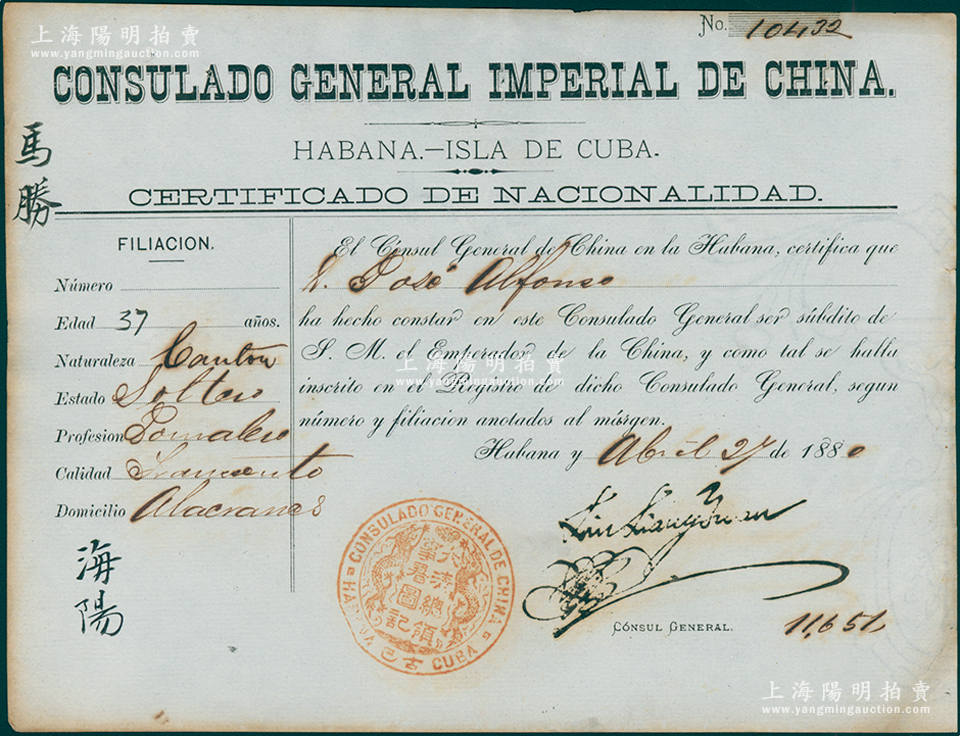 上海陽明拍賣
www.yangmingauction.com
No. 10432
CONSULADO GENERAL IMPERIAL DE CHINA.
HABANA.—ISLA DE CUBA.
CERTIFICADO DE NACIONALIDAD.
馬勝
FILIACION.
Número
Edad 37 años.
Naturaleza Canton
Estado Soltero
Profesion Jornalero
Calidad
Domicilio Alacranes
海陽
El Cónsul General de China en la Habana, certifica que
José Alfonso
ha hecho constar en este Consulado General ser súbdito de
S. M. el Emperador de la China, y como tal se halla
inscrito en el Registro de dicho Consulado General, segun
número y filiacion anotados al márgen.
Habana y Abril 27 de 1880
上海陽明拍賣
www.yangmingauction.com
Liu Liang Yuan
CÓNSUL GENERAL.
11,651,
CONSULADO GENERAL DE CHINA
HABANA
CUBA
古巴
大清
總領
事署
圖記
上海陽明拍賣
www.yangmingauction.com